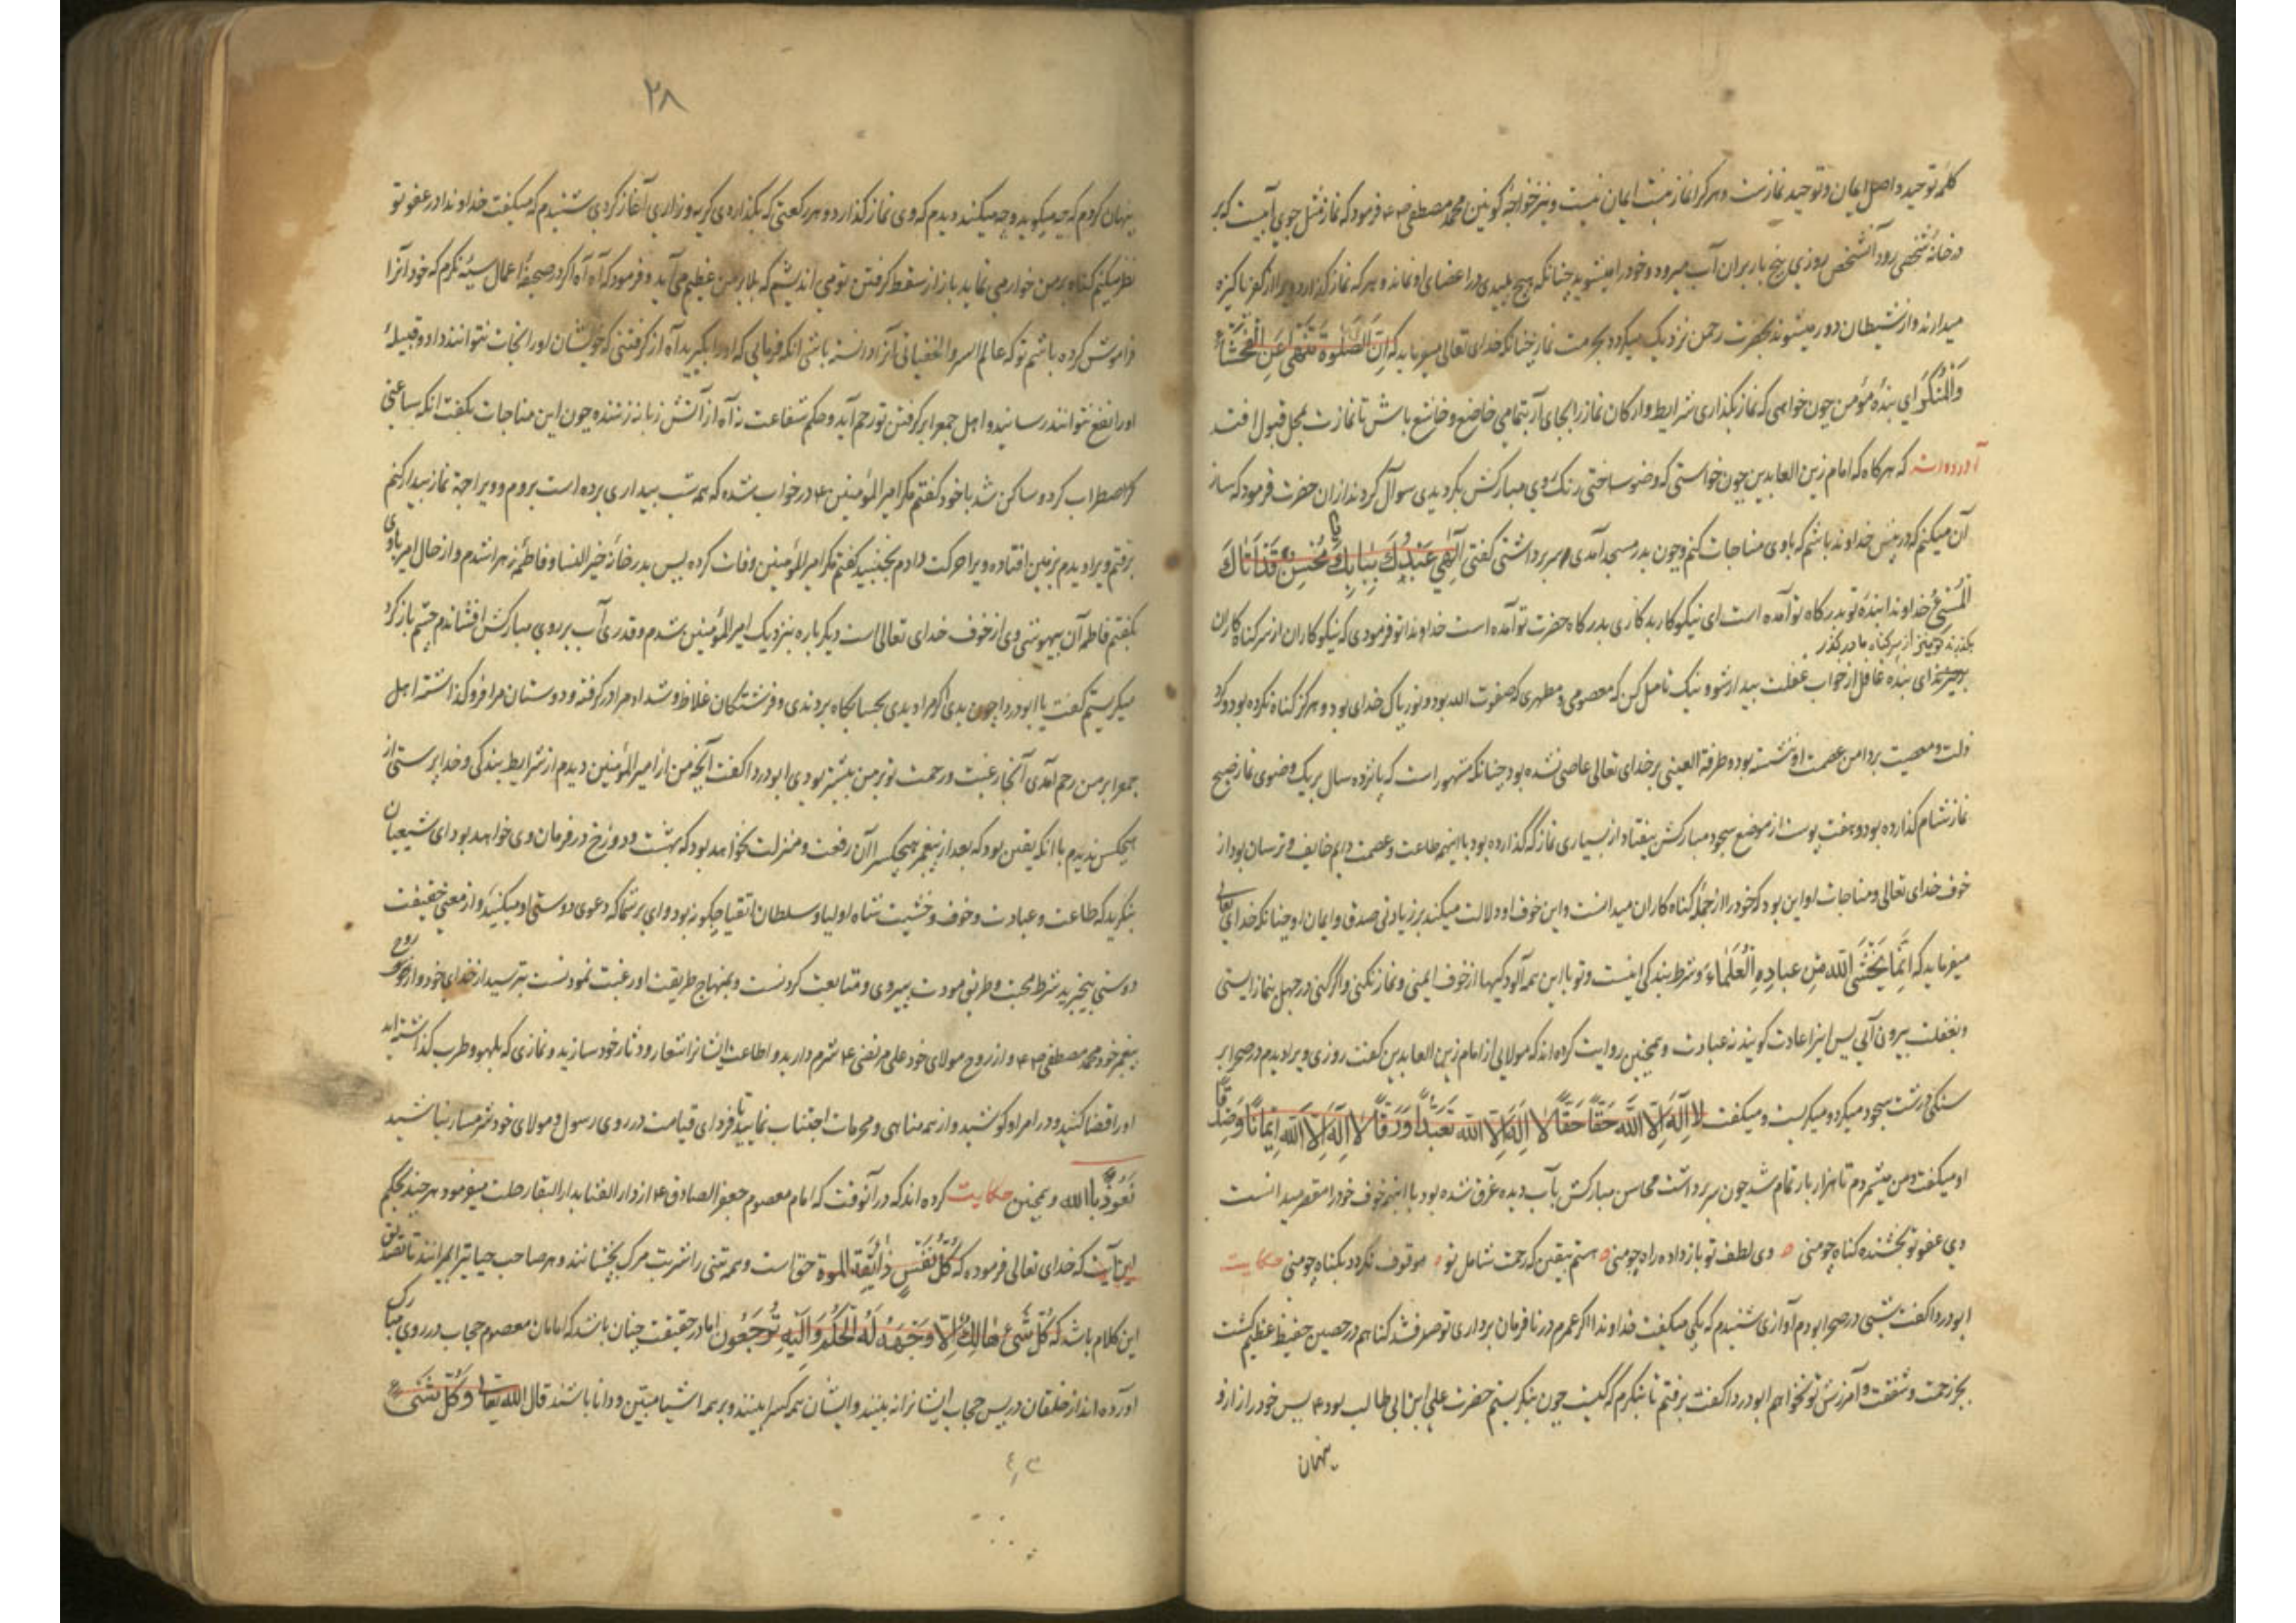 کلمه توحید و اصل ایمان و توحید نمازست و هرکرا نماز نیست ایمان نیست و نیز خواجه کونین محمد مصطفی ص ع فرمود که نماز مثل جوی آبیست که بر
در خانه شخصی رود آنشخص روزی پنج بار بران آب میرود و خود را میشوید چنانکه هیچ پلیدی در اعضای او نماند هرکه نماز گذارد ویرا از کفر پاکیزه
میدارند و از شیطان دور میشوند بحضرت رحمن نزدیک میکردد بحرمت نماز چنانکه خدای تعالی میفرماید که اِنَّ الصَّلوةَ تَنْهی عَنِ الْفَحْشَآءِ
وَالْمُنْکَرِ ای بنده مؤمن چون خواهی که نماز بگذاری شرایط و ارکان نماز را بجای آر بتمامی خاضع و خاشع باش تا نمازت بمحل قبول افتد
آورده اند که هرکاه که امام زین العابدین چون خواستی که وضو ساختی رنک روی مبارکش بگردیدی سوآل کردند ازان حضرت فرمود که ساز
آن میکنم که در پیش خداوند باشم که باوی مناجات کنم و چون بدر مسجد آمدی سر برداشتی گفتی اِلٰهِی عَبْدُكَ بِبَابِكَ یا مُحْسِنُ قَدْ اَتَاكَ
الْمُسِیْءُ خداوندا بنده تو بدرکاه تو آمده است ای نیکوکار بدکاری بدرکاه حضرت تو آمده است خداوندا تو فرمودی که نیکوکاران از سر کناه کاران
بگذرند تو نیز از سر کناه ما در گذر
ای بنده غافل از خواب غفلت بیدار شو و نیک تامل کن که معصومی و مطهری که صفوت الله بود و نور پاک خدای بود و هرگز کناه نکرده بود و کرد
ذلت و معصیت بر دامن عصمت او ننشسته بود و طرفة العینی بر خدای تعالی عاصی نشده بود چنانکه مشهور است که پانزده سال بریک وضوی نماز صبح
نماز شام کذارده بود و هفت پوست از موضع سجود مبارکش بیفتاد از بسیاری نماز که گذارده بود با اینهمه طاعت و عصمت دایم خایف و ترسان بود از
خوف خدای تعالی و مناجات او این بود که خود را از جمله کناه کاران میدانست و این خوف او دلالت میکند بر زیادتی صدق و ایمان او چنانکه خدای تعالی
میفرماید که اِنَّمَا یَخْشَی اللّٰهَ مِنْ عِبادِهِ الْعُلَمَاءُ و شرط بندکی اینست و تو با این همه آلودکیها از خوف ایمنی و نماز نکنی و اگر کنی در جهل بنماز ایستی
و بغفلت بیرون آئی پس اینرا عادت کویند نه عبادت و همچنین روایت کرده اند که مولایی از امام زین العابدین گفت روزی ویرا دیدم در صحرا بر
سنکی درشت سجود میکرد و میکریست و میکفت لا اِلٰهَ اِلَّا اللّٰهُ حَقًّا حَقًّا لا اِلٰهَ اِلَّا اللّٰهُ تَعَبُّداً وَرِقًّا لا اِلٰهَ اِلَّا اللّٰهُ اِیْمَانًا وَصِدْقًا
او میکفت و من میشمردم تا هزار بار تمام شد چون سر برداشت محاسن مبارکش بآب دیده غرق شده بود با اینهمه خوف خود را مقصر میدانست
وی عفو تو بخشنده کناه چو منی وی لطف تو باز داده راه چو منی هستم بیقین که رحمت شامل تو موقوف نکردد بکناه چو منی حکایت
ابودردا کفت شبی در صحرا بودم آوازی شنیدم که یکی میکفت خداوندا اکر عمرم در نافرمان برداری تو صرف شد کناهم در حصین حفیظ عظیم کشت
بجز رحمت و شفقت و آمرزش تو نخواهم ابودردا کفت برفتم تا بنکرم که کیست چون بنکریستم حضرت علی ابن ابی طالب بود ع پس خود را از او
پنهان
۲۸
پنهان کردم که چه میکوید و چه میکند دیدم که وی نماز کذارد و هر رکعتی که بکذاردی کریه و زاری آغاز کردی شنیدم که میکفت خداوندا در عفو تو
نظر میکنم کناه بر من خوار می نماید باز از سقط کرفتن تو می اندیشم که بلا بر من عظیم می آید و فرمود که آه آه اکر در صحیفه اعمال سیئه نکرم که خود آنرا
فراموش کرده باشم تو که عالم السر والخفیاتی آنرا دانسته باشی انکه فرمائی که او را بکیرید آه از کرفتنی که خویشان او را نجات نتوانند داد و قبیله
او را نفع نتوانند رسانید و اهل جمع را بر کرفتن تو رحم آید و حکم شفاعت نه آه از آتش زبانه زننده چون این مناجات بکفت انکه ساعتی
اضطراب کرد و ساکن شد با خود کفتم مکر امیرالمؤمنین ع در خواب شده که همه شب بیداری برده است بروم و ویرا جهة نماز بیدار کنم
برفتم ویرا دیدم بر زمین افتاده ویرا حرکت دادم نجنبید کفتم مکر امیرالمؤمنین وفات کرده پس بدر خانه خیرالنسا و فاطمه زهرا شدم و از حال امیر با وی
بکفتم فاطمه آن بیهوشی وی از خوف خدای تعالی است دیکر باره بنزدیک امیرالمؤمنین شدم و قدری آب بر روی مبارکش افشاندم چشم باز کرد
میکریستم کفت یا ابودردا چون بدی اکر مرا دیدی بحسابکاه بردندی و فرشتکان غلاظ و شداد مرا در کرفته و دوستان مرا فرو کذاشته اهل
جمع را بر من رحم آمدی آنجا رغبت و رحمت تو بر من بیشتر بودی ابودردا کفت آنچه من از امیرالمؤمنین دیدم از شرایط بندکی و خدا پرستی از
هیچکس ندیدم با انکه یقین بود که بعد از پیغمبر هیچکس را آن رفعت و منزلت نخواهد بود که بهشت و دوزخ در فرمان وی خواهد بود ای شیعیان
بنکرید که طاعت و عبادت و خوف و خشیت شاه اولیا و سلطان اتقیا چکونه بود وای بر شما که دعوی دوستی او میکنید و از معنی حقیقت
دوستی بیخبرید شرط محبت و طریق مودت پیروی و متابعت کردنست و بمنهاج طریقت او رغبت نمودنست بترسید از خدای خود و از روح
پیغمبر خود محمد مصطفی ص ع و از روح مولای خود علی مرتضی ع شرم دارید و اطاعت ایشانرا شعار و دثار خود سازید و نمازی که بلهو و طرب کذاشته اید
او را قضا کنید و در امر او کوشید و از همه مناهی و محرمات اجتناب نمایید تا فردای قیامت در روی رسول و مولای خود شرمسار نباشید
نَعُوذُ بِاللّٰه و همچنین حکایت کرده اند که در آنوقت که امام معصوم جعفر الصادق ع از دار الفنا بدار البقا رحلت میفرمود هرچند بحکم
این آیت که خدای تعالی فرموده که کُلُّ نَفْسٍ ذَائِقَةُ الْمَوْة حق است و همه تنی را شربت مرک بچشانند و هر صاحب حیاتیرا بمیرانند تا تصدیق
این کلام باشد که کُلُّ شَیْءٍ هَالِكٌ اِلَّا وَجْهَهُ لَهُ الْحُکْمُ وَاِلَیْهِ تُرْجَعُون اما در حقیقت چنان باشد که امامان معصوم حجاب در روی مبارک
آورده اند از خلقان در پس حجاب ایشانرا نه بینند و ایشان همه کس را بینند و بر همه اشیا مبیّن و دانا باشند قال اللّٰه تعالی وَکُلُّ شَیْءٍ